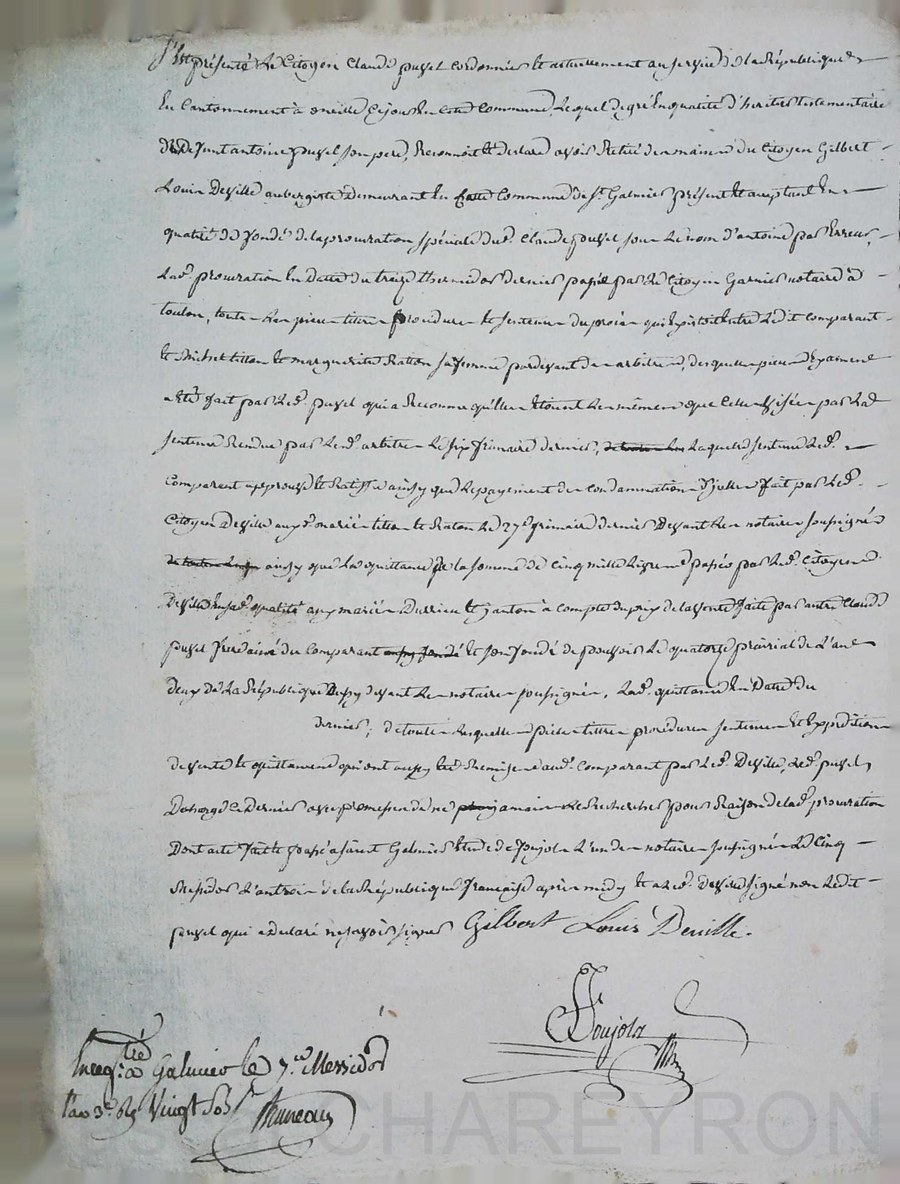 S'est présenté Le Citoyen Claude puzel Cordonnier et actuellement au service de la République
En Cantonnement à oneille Ejour En cette Commune, Lequel degré En qualité d'heritier testamentaire
de Defunt antoine puzel son pere, Reconnoit et declare avoir Retiré des mains du Citoyen Gilbert
Louis Deville aubergiste Demeurant En cette Commune de St. Galmier présent et acceptant En
qualité de fondé de la procuration spéciale dud. Claude puzel sous Le nom d'antoine par Erreur,
Lad. procuration En Datte du treize thermidor dernier passée par Le Citoyen Garnier notaire à
toulon, toutes Les pieces titres procedure et sentence du procès qui Existoit Entre Ledit comparant
et Michel tillon et marguerite Raton sa femme pardevant des arbitres, desquelles pieces Examen
a Eté fait par Led. puzel qui a Reconnu qu'elles Etoient Les mêmes que Celles Visées par La
sentence Rendue par Led. arbitres Le six frimaire dernier, Laquelle sentence Led.
Comparant approuve et Ratiffie ainsy que Le payement des Condamnations d'jcelle fait par Led.
Citoyen Deville aux d. mariés tillon et Raton Le 27e. frimaire dernier Devant Les notaires soussignés
ainsy que La quittance de la somme de Cinq mille Livres passée par Led. Citoyen
Deville En sad. qualité aux mariés et janton à compte du prix de la vente faite par autre Claude
puzel frere ainé du Comparant et son fondé de pouvoir Le quatorze prairial de L'an
deux de La République Aussy devant Les notaires soussignés, Lad. quittance En Datte du
dernier; de toutes Lesquelles pieces titres procedures sentences Et Expéditions
de vente et quittances qui ont aussy Eté Remises aud. Comparant par Led. Deville, Led. puzel
Decharge Ce Dernier avec promesse de ne jamais Le Rechercher pour Raison de lad. procuration
Dont acte fait et passé à saint Galmier Etude de Poujols L'un des notaires soussignés Le Cinq
Messidor L'an trois de la République française après midy et a Led. Deville signé non Ledit
puzel qui a Declaré ne savoir signer Gilbert Louis Deville.
Poujols
Nre
Enregtré à Galmier le 7e. Messidor
l'an 3e. Rs Vingt Sols
Bruneau
CHAREYRON